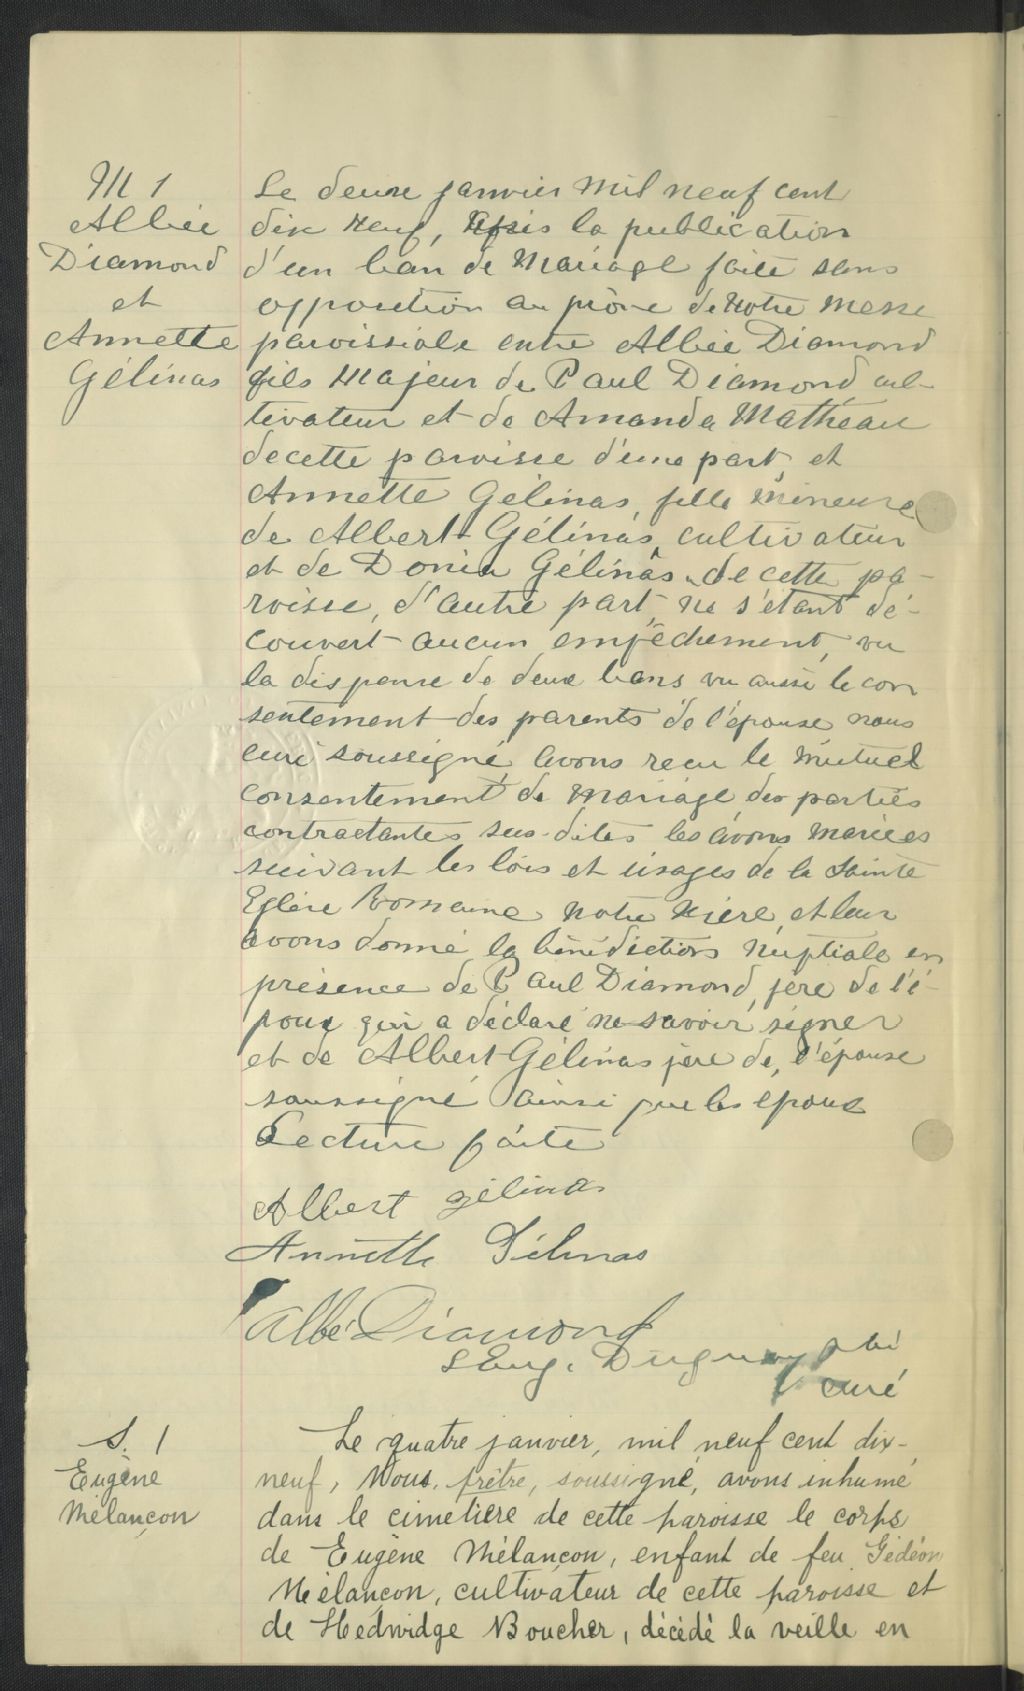 M 1
Albée
Diamond
et
Annette
Gélinas
Le deuxe janvier mil neuf cent
dix neuf, après la publication
d'un ban de Mariage faite sans
opposition au prône de Notre Messe
paroissiale entre Albée Diamond
fils Majeur de Paul Diamond cul-
tivateur et de Amanda Mathéau
de cette paroisse d'une part, et
Annette Gélinas, fille Mineure
de Albert Gélinas, cultivateur
et de Donia Gélinas, de cette pa-
roisse, d'autre part, ne s'étant dé-
couvert aucun empêchement, vu
la dispense de deux bans vu aussi le con
sentement des parents de l'épouse nous
curé soussigné, avons reçu le Mutuel
Consentement de Mariage des parties
contractantes sus-dites les avons Mariées
suivant les lois et usages de la Sainte
Eglise Romaine Notre Mère, et leur
avons donné la bénédiction Nuptiale en
présence de Paul Diamond, père de l'é-
poux qui a déclaré ne savoir signer
et de Albert Gélinas père de l'épouse
soussigné ainsi que les époux
Lecture faite
Albert Gélinas
Annette Gélinas
Albé Diamond
S Eug. Duguay ptre
curé
S. 1
Eugène
Mélançon
Le quatre janvier, mil neuf cent dix-
neuf, Nous, prêtre, soussigné, avons inhumé
dans le cimetière de cette paroisse le corps
de Eugène Mélançon, enfant de feu Gédéon
Mélançon, cultivateur de cette paroisse et
de Hedwidge Boucher, décédé la veille en